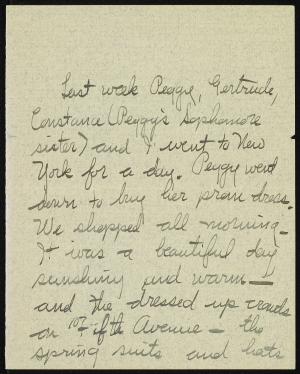 Last week Peggy, Gertrude,
Constance (Peggy's sophomore
sister) and I went to New
York for a day. Peggy went
down to buy her prom dress.
We shopped all morning.
It was a beautiful day
sunshiny and warm—
and the dressed up crowds
on Fifth Avenue — the
spring suits and hats